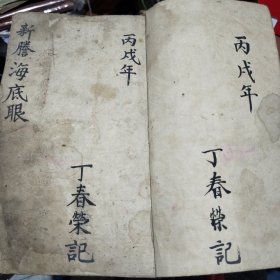 丙戌年
丁春榮記
丙戌年
丁春榮記
新謄海底眼